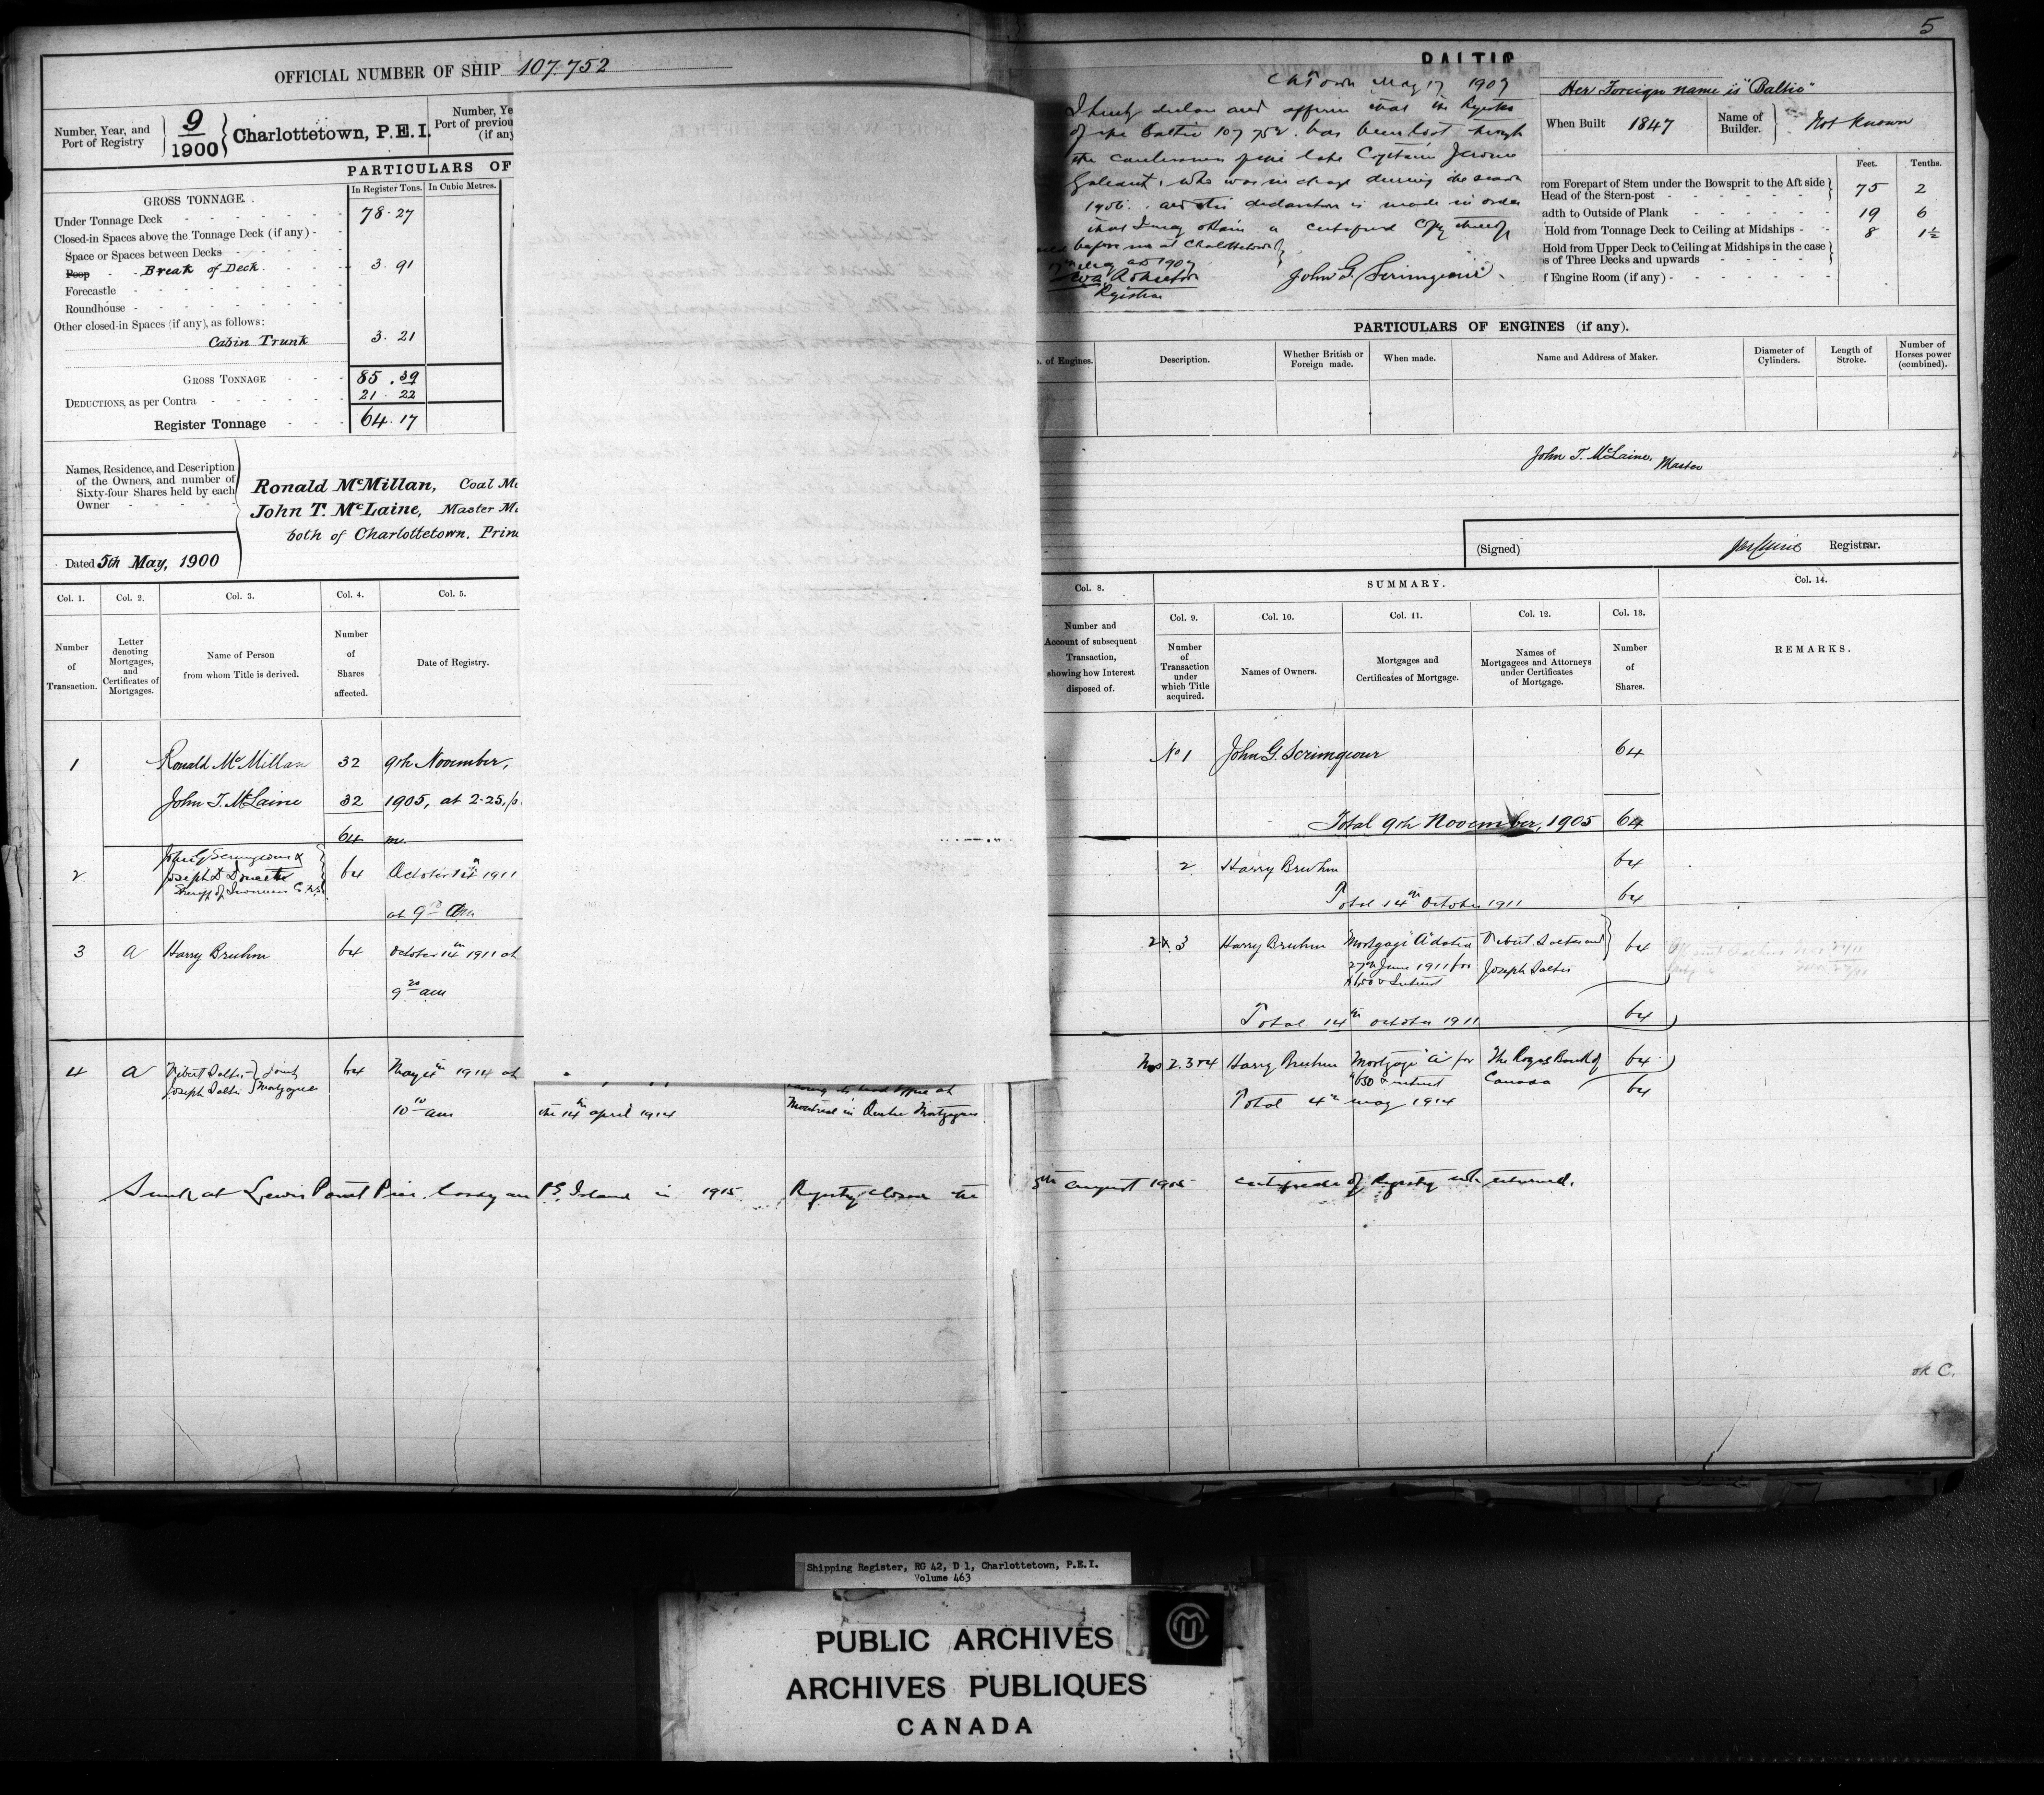 5
OFFICIAL NUMBER OF SHIP 107.752
Number, Year, and
Port of Registry
9
1900
Charlottetown, P.E.I.
Number, Ye
Port of previou
(if any
PARTICULARS OF
In Register Tons.
In Cubic Metres.
GROSS TONNAGE.
Under Tonnage Deck 78.27
Closed-in Spaces above the Tonnage Deck (if any)
Space or Spaces between Decks
Poop Break of Deck 3.91
Forecastle
Roundhouse
Other closed-in Spaces (if any), as follows:
Cabin Trunk 3.21
GROSS TONNAGE 85.39
DEDUCTIONS, as per Contra 21.22
Register Tonnage 64.17
Names, Residence, and Description
of the Owners, and number of
Sixty-four Shares held by each
Owner
Ronald McMillan, Coal Me
John T. McLaine, Master Ma
both of Charlottetown. Prin
Dated 5th May, 1900
Col. 1.
Col. 2.
Col. 3.
Col. 4.
Col. 5.
Number
of
Transaction.
Letter
denoting
Mortgages,
and
Certificates of
Mortgages.
Name of Person
from whom Title is derived.
Number
of
Shares
affected.
Date of Registry.
1 Ronald McMillan 32 9th November,
John T. McLaine 32 1905, at 2.25, p.
64 m.
2 John G Scrimgeour & 64 October 14th 1911
Joseph D
Sheriff of Inverness Co. N.S.
at 9 am
3 A Harry Bruhm 64 October 14th 1911 at
9 20 am
4 A Joint 64 May 4th 1914 at
Joseph Mortgagees
10 10 am the 14th april 1914
having its head office at
Montreal in Quebec Mortgagees
Sunk at Lewis Point Pier P.E. Island in 1915 Registry closed the 5th august 1915 certificate of Registry not returned.
BALTIC
Ch Town May 17 1907
I hereby declare and affirm that the Register
of the Baltic 107752 has been lost through
the carelessness of the late Captain Jerome
Galeant, who was in charge during the season
1906. and this declaration is made in order
that I may obtain a certified copy thereof
before me at Charlottetown
May AD 1907
Registrar
John G. Scrimgeour
Her Foreign name is "Baltic"
When Built 1847
Name of
Builder.
Not Known
Feet.
Tenths.
rom Forepart of Stem under the Bowsprit to the Aft side
Head of the Stern-post 75 2
adth to Outside of Plank 19 6
Hold from Tonnage Deck to Ceiling at Midships 8 1½
Hold from Upper Deck to Ceiling at Midships in the case
s of Three Decks and upwards
f Engine Room (if any)
PARTICULARS OF ENGINES (if any).
o. of Engines.
Description.
Whether British or
Foreign made.
When made.
Name and Address of Maker.
Diameter of
Cylinders.
Length of
Stroke.
Number of
Horses power
(combined).
John T. McLaine, Master
(Signed)
Registrar.
Col. 8.
SUMMARY.
Col. 14.
Number and
Account of subsequent
Transaction,
showing how Interest
disposed of.
Col. 9.
Number
of
Transaction
under
which Title
acquired.
Col. 10.
Names of Owners.
Col. 11.
Mortgages and
Certificates of Mortgage.
Col. 12.
Names of
Mortgagees and Attorneys
under Certificates
of Mortgage.
Col. 13.
Number
of
Shares.
REMARKS.
No 1 John G. Scrimgeour 64
Total 9th November, 1905 64
2 Harry Bruhm 64
Total 14th October 1911 64
2 & 3 Harry Bruhm Mortgage "A" dated 64
27th June 1911 for Joseph
& Interest
Total 14th October 1911 64
Nos 2.3 & 4 Harry Bruhm Mortgage "A" for The Royal Bank of 64
$650 & interest Canada
Total 4th May 1914 64
OK C.
Shipping Register, RG 42, D 1, Charlottetown, P.E.I.
Volume 463
PUBLIC ARCHIVES
ARCHIVES PUBLIQUES
CANADA